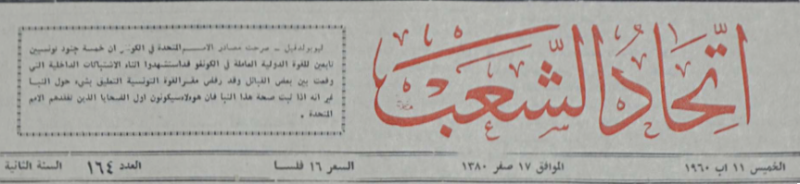 اتّحادُ الشَّعب
ليوبولدفيل - صرحت مصادر الامم المتحدة في الكونغو ان خمسة جنود تونسيين
تابعين للقوة الدولية العاملة في الكونغو قد استشهدوا اثناء الاشتباكات الداخلية التي
وقعت بين بعض القبائل وقد رفض مقر القوة التونسية التعليق بشيء حول النبا
غير انه اذا ثبت صحة هذا النبا فان هؤلاء سيكونون اول الضحايا الذين تفقدهم الامم
المتحدة .
الخميس ١١ اب ١٩٦٠ الموافق ١٧ صفر ١٣٨٠ السعر ١٦ فلسا العدد ١٦٤ السنة الثانية